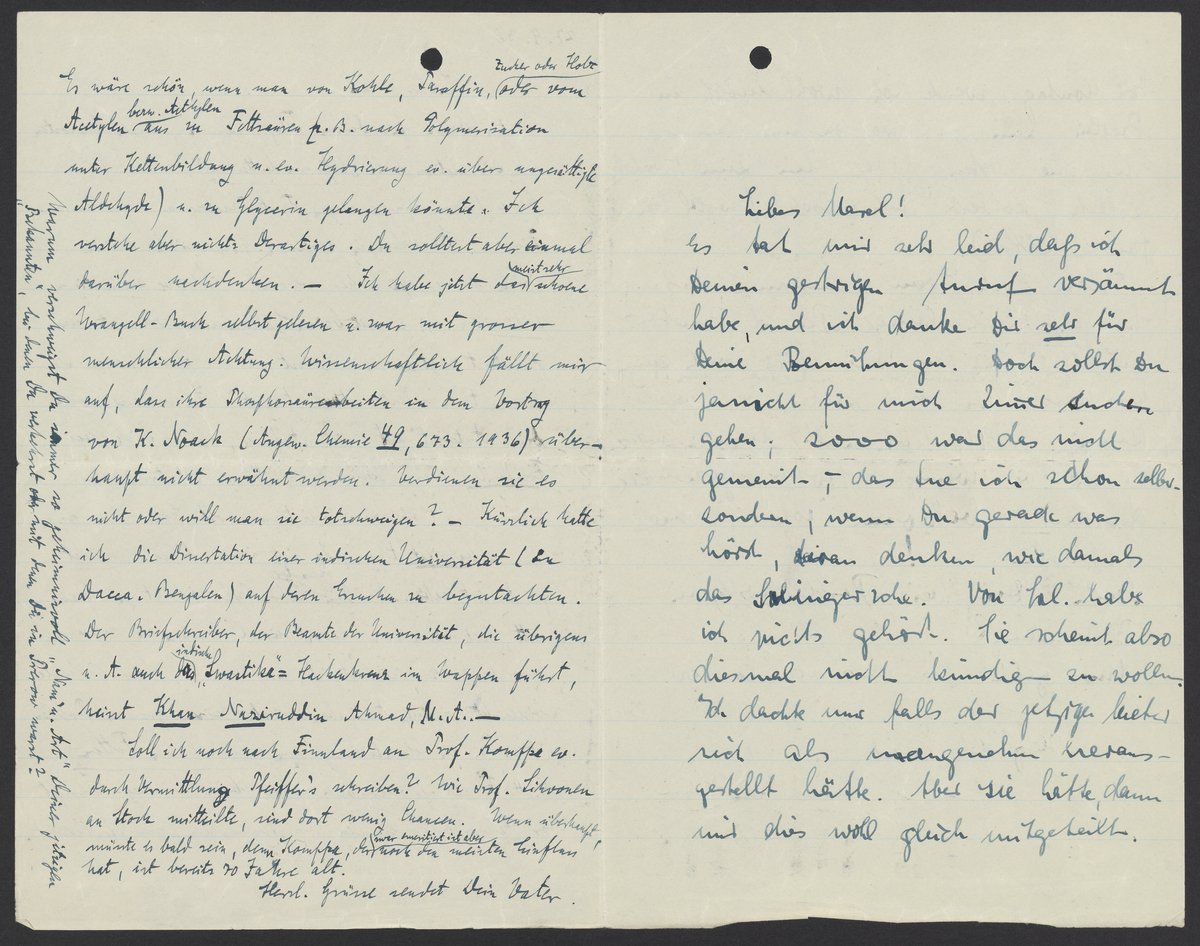 Es wäre schön, wenn man von Kohle, Paraffin, oder vom
Zucker oder Holz
Acetylen bezw. Aethylen aus zu Fettsäuren (z. B. nach Polymerisation
unter Kettenbildung u. ev. Hydrierung ev. über ungesättigte
Aldehyde) u. zu Glycerin gelangen könnte. Ich
verstehe aber nichts Derartiges. Du solltest aber einmal
darüber nachdenken. — Ich habe jetzt das meist sehr schoene
Wrangell-Buch selbst gelesen u. zwar mit grosser
menschlicher Achtung. Wissenschaftlich fällt mir
auf, dass ihre Phosphorsäurearbeiten in dem Vortrag
von K. Noack (Angew. Chemie 49, 673. 1936) über-
haupt nicht erwähnt werden. Verdienen sie es
nicht oder will man sie totschweigen? — Kürzlich hatte
ich die Dissertation einer indischen Universität (
Dacca, Bengalen) auf deren Ersuchen zu begutachten.
Der Briefschreiber, der Beamte der Universität, die übrigens
u. A. auch das indische „Swastika" = Hackenkreuz im Wappen führt,
heisst Khan Naziruddin Ahmad, M. A. —
Soll ich noch nach Finnland an Prof. Komppa ev.
durch Vermittlung Pfeiffer's schreiben? Wie Prof.
an Stock mitteilte, sind dort wenig Chancen. Wenn überhaupt,
müsste es bald sein, denn Komppa, der zwar emeritiert ist aber noch den meisten Einfluss
hat, ist bereits 70 Jahre alt.
Herzl. Grüsse sendet Dein Vater.
Warum verschweigst Du immer so geheimnisvoll „Nam' u. Art" Deiner jetzigen
„Bekannten", bei denen Du verkehrst oder mit denen Du in Prerow warst?
Liebes Marel!
Es tat mir sehr leid, dass ich
Deinen gestrigen Anruf versäumt
habe, und ich danke Dir sehr für
Deine Bemühungen. Doch sollst Du
ja nicht für mich Zimmer suchen
gehen; sooo war das nicht
gemeint —, das tue ich schon selber-
sondern, wenn Du gerade was
hörst, daran denken, wie damals
das. Von Frl. habe
ich nichts gehört. Sie scheint also
diesmal nicht kündigen zu wollen.
Ich dachte nur falls der jetzige Leiter
sich als unangenehm heraus-
gestellt hätte. Aber sie hätte, dann
mir dies wohl gleich mitgeteilt.